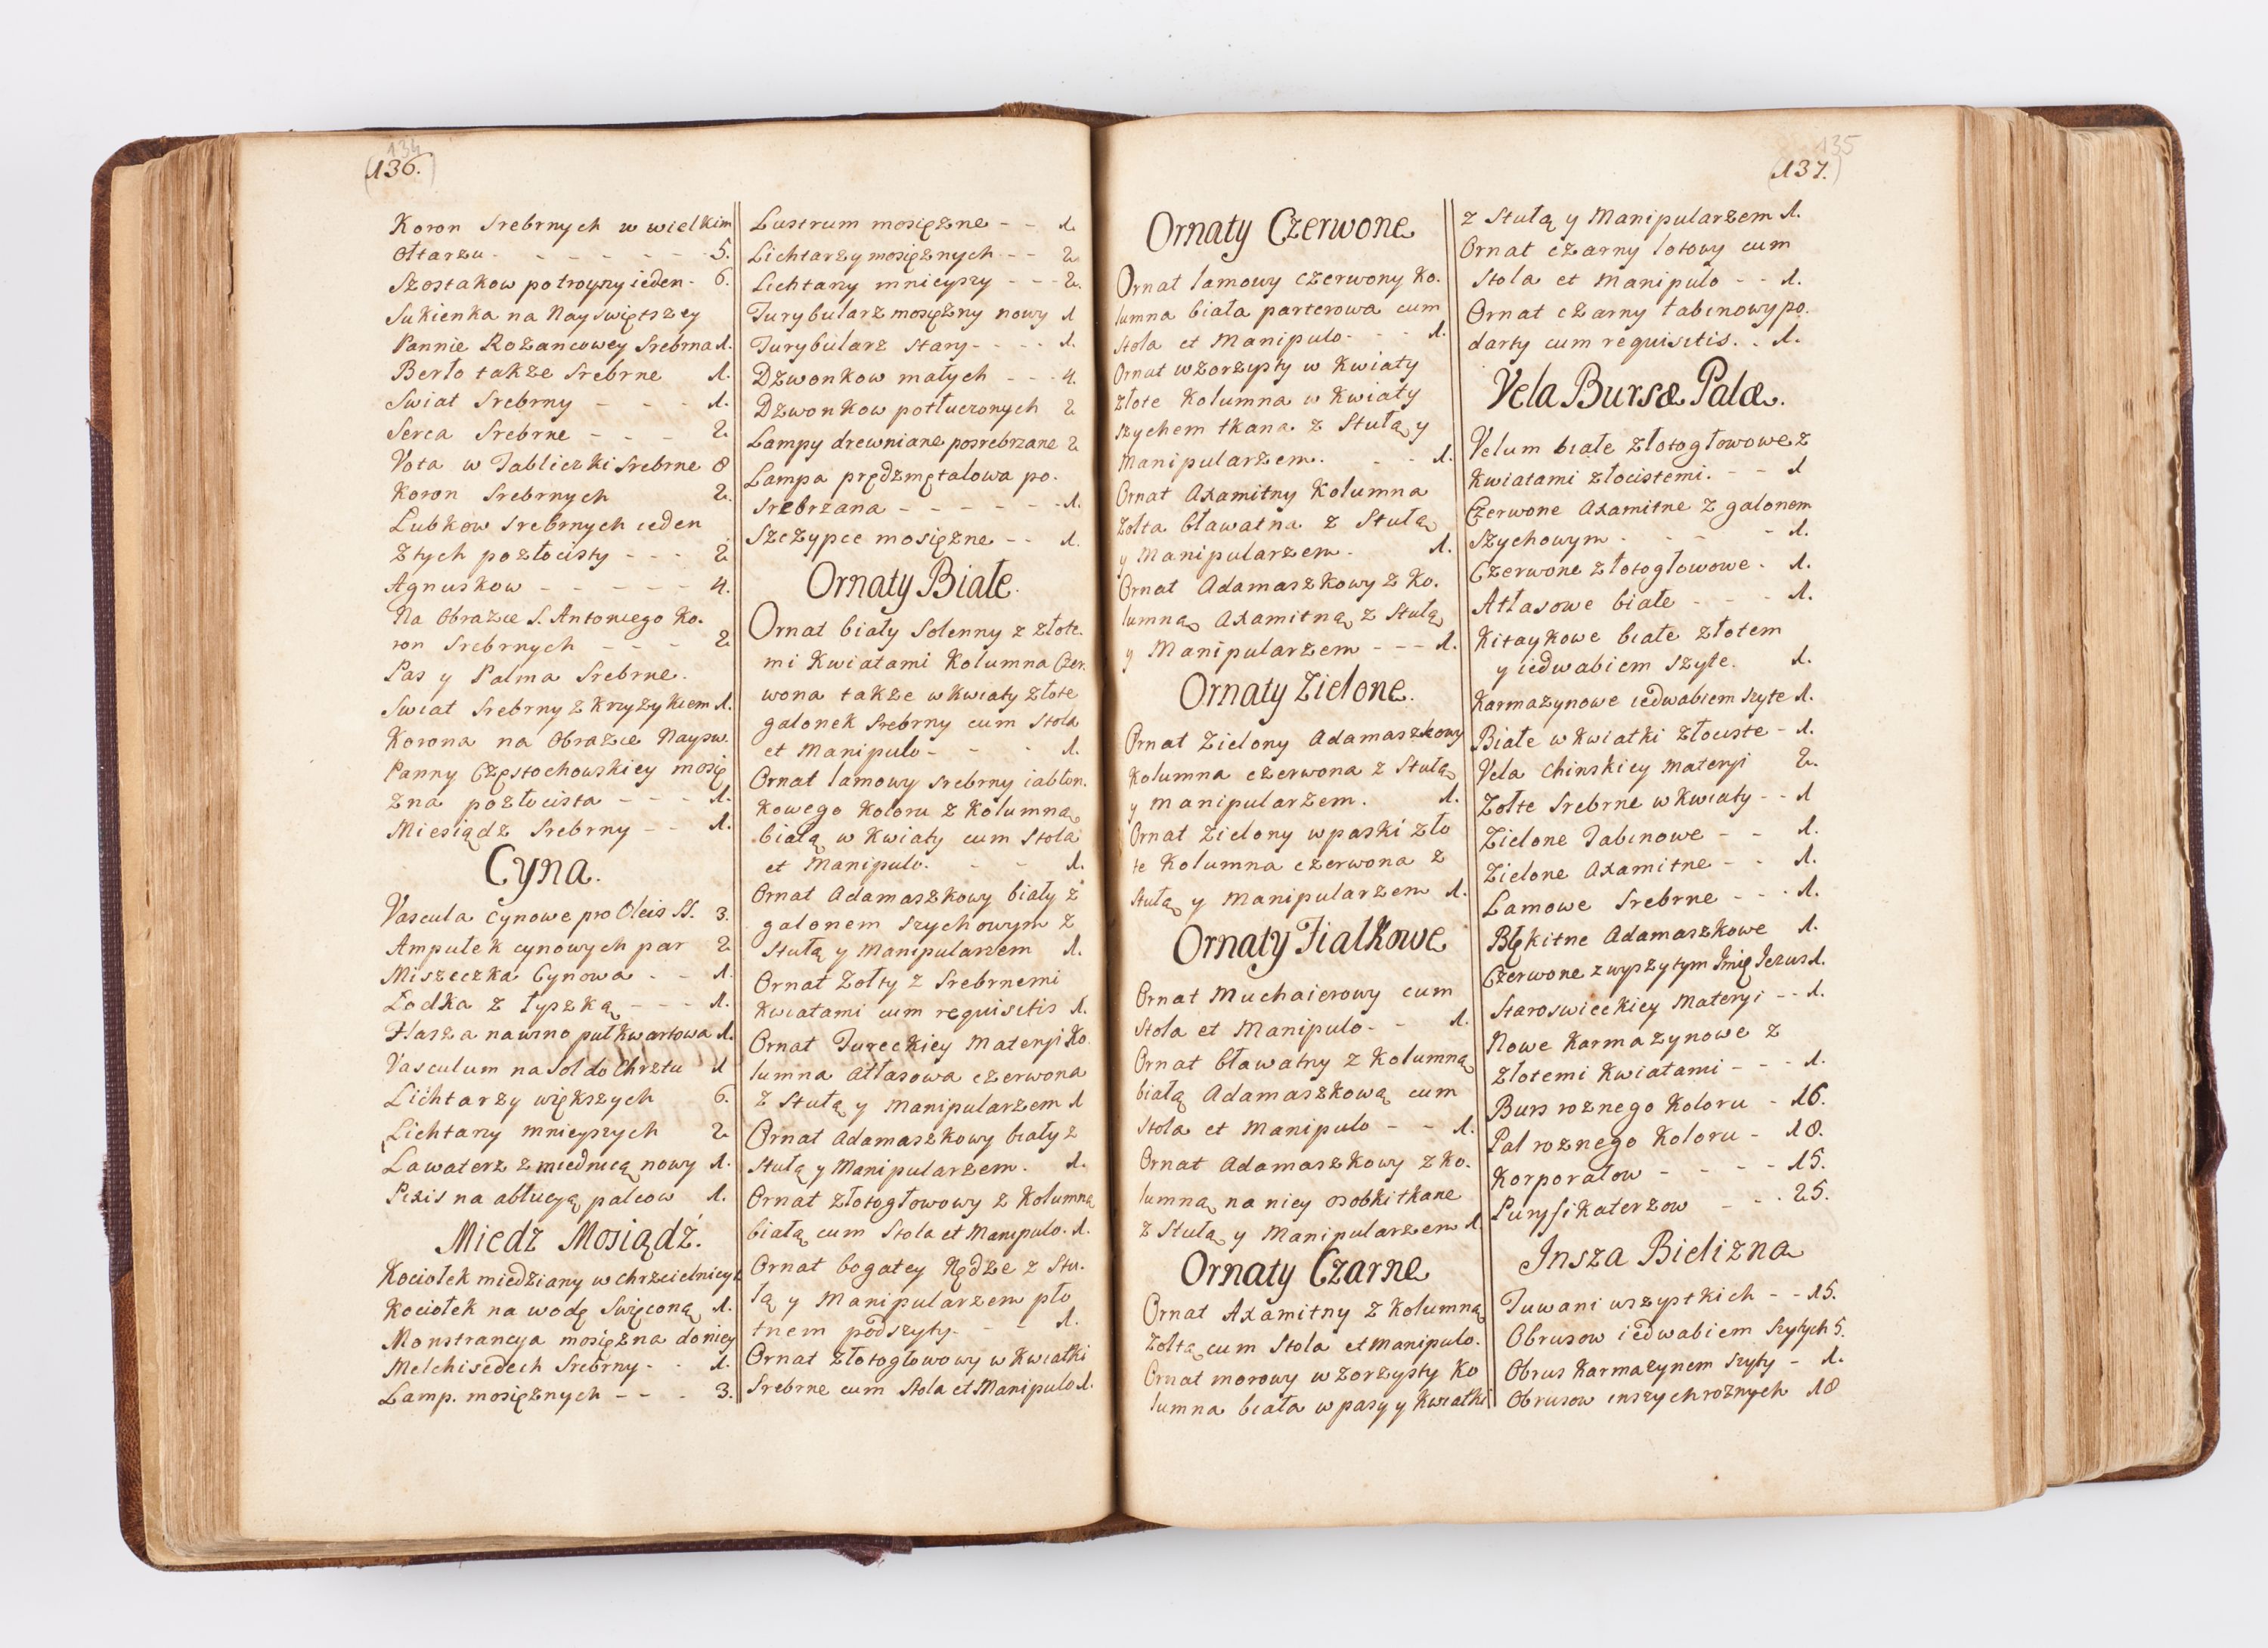 134
(136.)
Koron Srebrnych w wielkim
Ołtarzu. - - - - - - 5.
Szostakow potroyny ieden - 6.
Sukienka na Nayswiętszey
Pannie Rozancowey Srebrna 1.
Berło takze Srebrne 1.
Swiat Srebrny - - - 1.
Serca Srebrne - - - 2
Vota w Tabliczki Srebrne 8
Koron Srebrnych 2.
Lubkow Srebrnych ieden
z tych pozłocisty - - - 2
Agnuskow - - - - - 4.
Na Obrazie S. Antoniego Ko.
ron Srebrnych - - - 2
Pas y Palma Srebrne.
Swiat Srebrny z krzyzykiem 1.
Korona na Obrazie Naysw.
Panny Częstochowskiey mosię
zna pozłocista - - - 1.
Miesiądz Srebrny - - 1.
Cyna.
Vascula cynowe pro Oleis SS. 3.
Ampułek cynowych par 2
Miszeczka Cynowa - - 1.
Łodka z łyszką - - - 1.
Flasza na wino puł kwartowa 1.
Vasculum na Sol do Chrztu 1
Lichtarzy większych 6.
Lichtarzy mnieyszych 2
Lawaterz z miednicą nowy 1.
Pixis na ablucyą palcow 1.
Miedz Mosiądz.
Kociołek miedziany w chrzcielnicy 1
Kociołek na wodę Swięconą 1.
Monstrancya mosięzna do niey
Melchisedech Srebrny - - 1.
Lamp. mosięznych - - - 3.
Lustrum mosięzne - - 1.
Lichtarzy mosięznych - - 2
Lichtarzy mnieyszy - - - 2.
Turybularz mosięzny nowy 1
Turybularz stary - - - - 1.
Dzwonkow małych - - - 4.
Dzwonkow potłuczonych 2
Lampy drewniane posrebrzane 2
Lampa prędzmętalowa po.
srebrzana - - - - - - 1.
Szczypce mosięzne - - 1.
Ornaty Białe.
Ornat biały Solenny z złote.
mi kwiatami Kolumna Czer.
wona takze w kwiaty złote
galonek Srebrny cum Stola
et Manipulo - - - 1.
Ornat lamowy srebrny iabłon.
kowego Koloru z Kolumną
białą w kwiaty cum Stola
et Manipulo. - - 1.
Ornat Adamaszkowy biały z
galonem szychowym z
Stułą y Manipularzem 1.
Ornat Zołty z Srebrnemi
kwiatami cum requisitis 1.
Ornat Tureckiey Materyi Ko
lumna Atłasowa czerwona
z Stułą y Manipularzem 1
Ornat Adamaszkowy biały z
Stułą y Manipularzem. 1.
Ornat Złotogłowowy z Kolumną
białą cum Stola et Manipulo. 1.
Ornat bogatey Nędze z Stu.
łą y Manipularzem pło
tnem podszyty - - 1.
Ornat Złotogłowowy w kwiatki
Srebrne cum Stola et Manipulo 1.
135
(137.)
Ornaty Czerwone
Ornat lamowy czerwony Ko.
lumna biała parterowa cum
Stola et Manipulo - - 1.
Ornat wzorzysty w kwiaty
złote Kolumna w kwiaty
szychem tkana z Stułą y
Manipularzem. - - 1.
Ornat Axamitny Kolumna
Zołta bławatna z Stułą
y Manipularzem. 1.
Ornat Adamaszkowy z Ko.
lumną Axamitną z Stułą
y Manipularzem - - - 1.
Ornaty Zielone.
Ornat Zielony Adamaszkowy
Kolumna czerwona z Stułą
y Manipularzem. 1.
Ornat Zielony w paski zło
te Kolumna czerwona z
Stułą y Manipularzem 1.
Ornaty Fialkowe
Ornat Muchaierowy cum
Stola et Manipulo - - 1.
Ornat bławatny z Kolumną
białą Adamaszkową cum
Stola et Manipulo - - 1.
Ornat Adamaszkowy z Ko.
lumną na niey osobki tkane
z Stułą y Manipularzem 1
Ornaty Czarne
Ornat Axamitny z Kolumną
Zołtą cum Stola et Manipulo.
Ornat morowy wzorzysty Ko
lumna biała w pasy y kwiatki
z Stułą y Manipularzem 1.
Ornat czarny lotowy cum
Stola et Manipulo - - 1.
Ornat czarny tabinowy po.
darty cum requisitis. . 1.
Vela Bursæ Palæ.
Velum białe złotogłowowe z
kwiatami złocistemi. - - 1
Czerwone Axamitne z galonem
szychowym - - - 1.
Czerwone złotogłowowe - 1.
Atłasowe białe - - - 1.
Kitaykowe białe złotem
y iedwabiem szyte. 1.
Karmazynowe iedwabiem szyte 1.
Białe w kwiatki złociste - 1.
Vela Chinskiey Materyi 2.
Zołte Srebrne w kwiaty - - 1
Zielone Tabinowe - - 1.
Zielone Axamitne - - 1.
Lamowe Srebrne - - - 1.
Błękitne Adamaszkowe 1.
Czerwone z wyszytym Imię Jezus 1.
Staroswieckiey Materyi - - 1.
Nowe Karmazynowe z
złotemi kwiatami - - - 1.
Burs roznego Koloru - 16.
Pal roznego Koloru - 18.
Korporałow - - - - 15.
Puryfikaterzow - - . 25.
Insza Bielizna
Tuwani wszystkich - - 15.
Obrusow iedwabiem szytych 5.
Obrus Karmazynem szyty - 1.
Obrusow inszych roznych 18